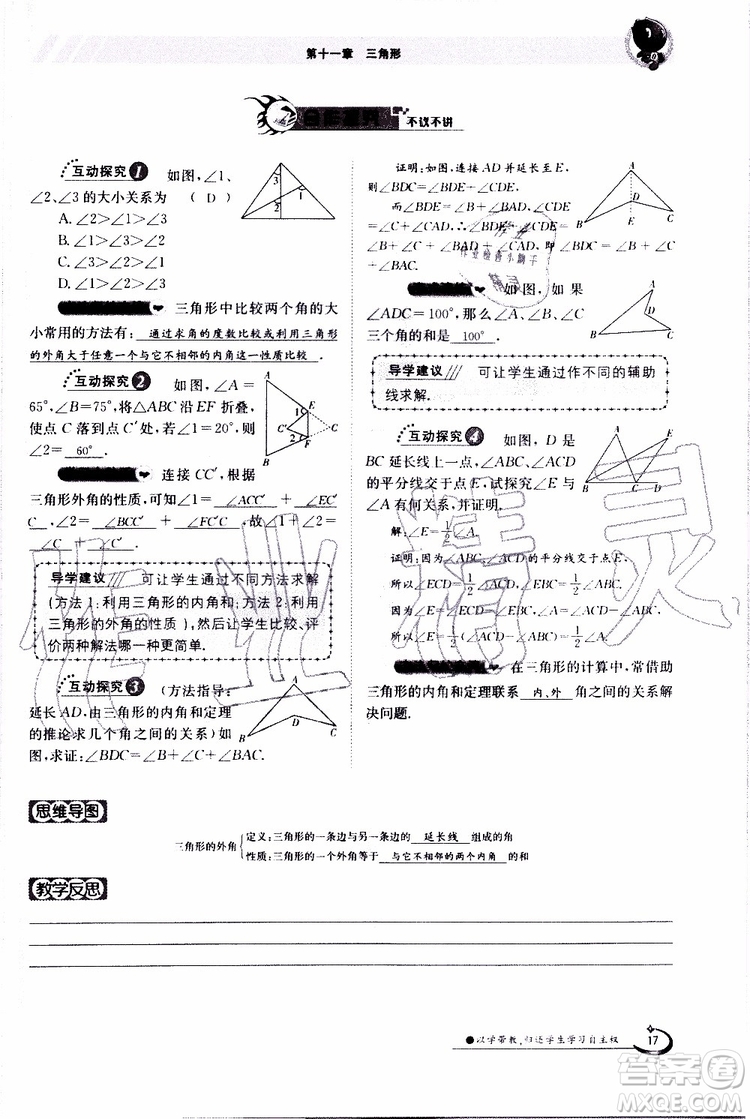 第十一章 三角形
不议不讲
互动探究 1 如图,∠1、
∠2、∠3的大小关系为 ( D )
A.∠2>∠1>∠3
B.∠1>∠3>∠2
C.∠3>∠2>∠1
D.∠1>∠2>∠3
三角形中比较两个角的大
小常用的方法有: 通过求角的度数比较或利用三角形
的外角大于任意一个与它不相邻的内角这一性质比较 .
互动探究 2 如图,∠A=
65°,∠B=75°,将△ABC沿EF折叠,
使点C落到点C′处,若∠1=20°,则
∠2= 60° .
连接CC′,根据
三角形外角的性质,可知∠1= ∠ACC′ + ∠EC′
C ,∠2= ∠BCC′ + ∠FC′C ,故∠1+
∠2=∠ C +∠ C′ .
导学建议 可让学生通过不同方法求解
(方法1:利用三角形的内角和;方法2:利用
三角形的外角的性质),然后让学生比较、评
价两种解法哪一种更简单.
互动探究 3 (方法指导:
延长AD,由三角形的内角和定理
的推论求几个角之间的关系)如
图,求证:∠BDC=∠B+∠C+∠BAC.
证明:如图,连接AD并延长至E,
则∠BDC=∠BDE+∠CDE.
而∠BDE=∠B+∠BAD,∠CDE
=∠C+∠CAD,∴∠BDC=∠B+∠BAD
+∠C+∠CAD,即∠BDC=∠B+∠C+
∠BAC.
如图,如果
∠ADC=100°,那么∠A、∠B、∠C
三个角的和是 100° .
导学建议 可让学生通过作不同的辅助
线求解.
互动探究 4 如图,D是
BC延长线上一点,∠ABC、∠ACD
的平分线交于点E,试探究∠E与
∠A有何关系,并证明.
解:∠E=1/2∠A.
证明:因为∠ABC、∠ACD的平分线交于点E,
所以∠ECD=1/2∠ACD,∠EBC=1/2∠ABC.
因为∠ECD=∠EBC+∠E,∠ACD=∠ABC+∠A,
所以∠E=1/2(∠ACD-∠ABC)=1/2∠A.
在三角形的计算中,常借助
三角形的内角和定理联系 内、外 角之间的关系解
决问题.
思维导图
三角形的外角
定义:三角形的一条边与另一条边的 延长线 组成的角
性质:三角形的一个外角等于 与它不相邻的两个内角 的和
教学反思
●以学带教,归还学生学习自主权
17
作业精灵
答案圈
MXQE.COM